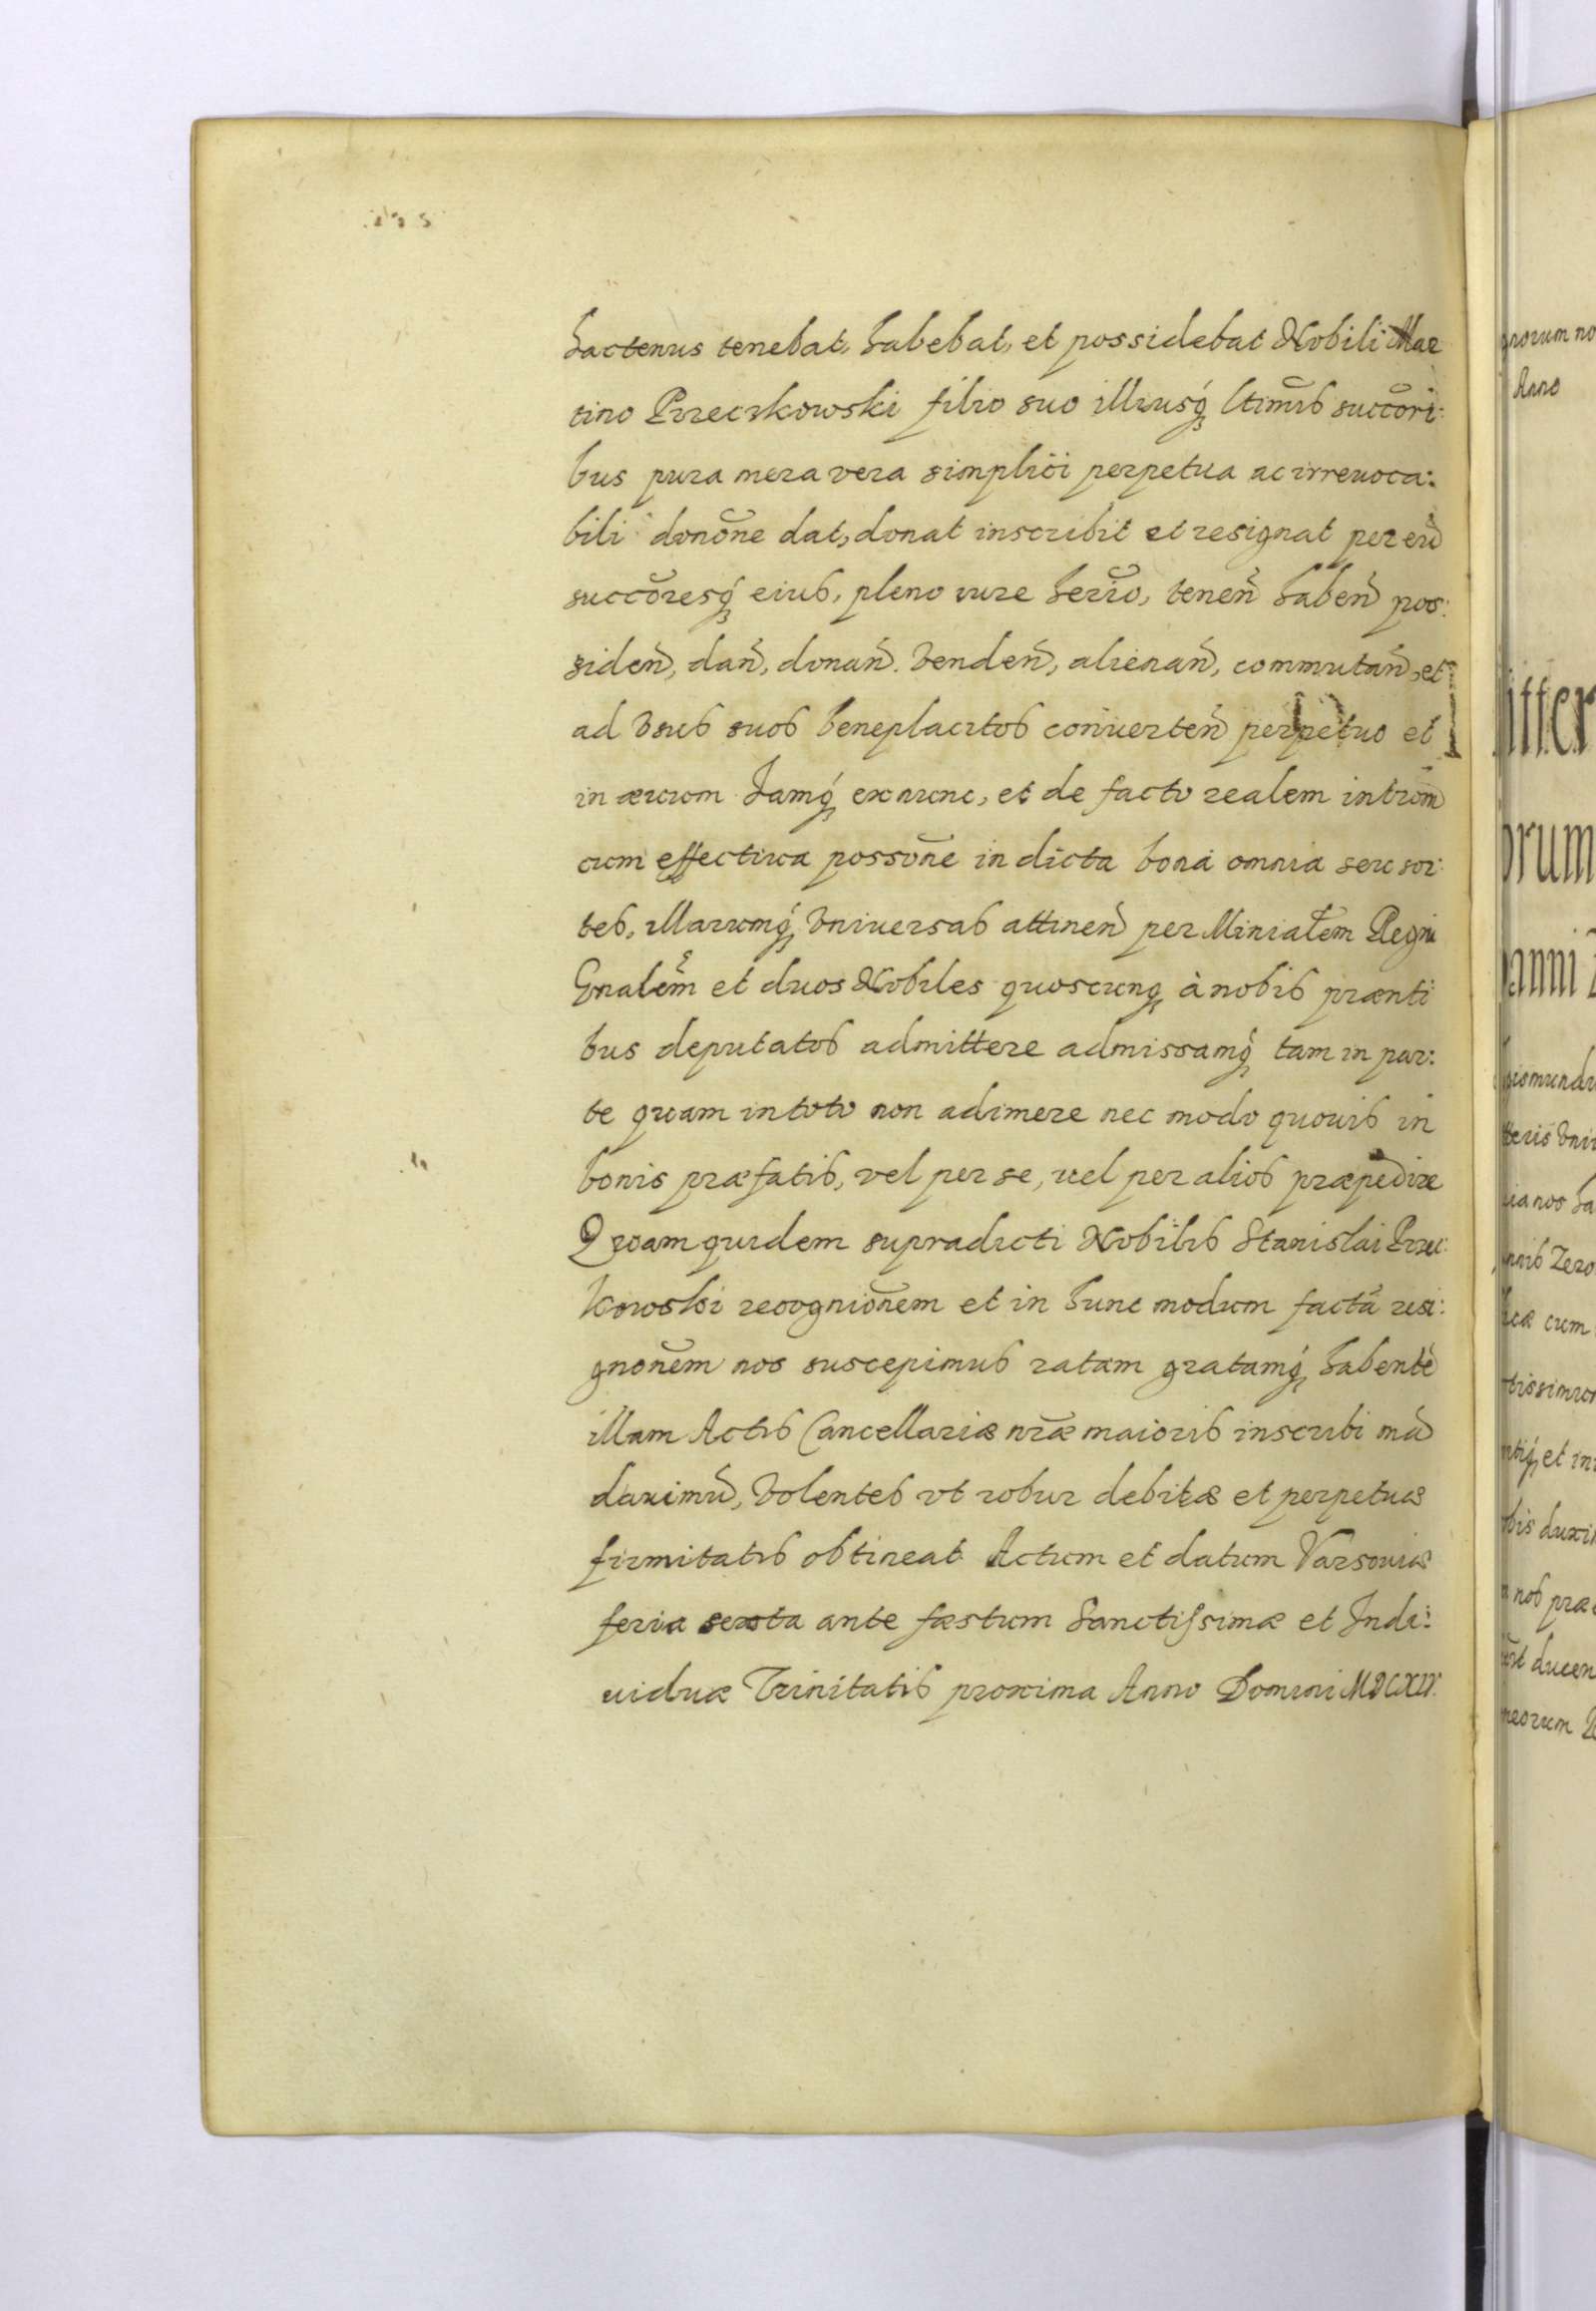 hactenus tenebat, habebat, et possidebat Nobili Mar
tino Przeczkowski filio suo illiusq́ ltimis succori:
bus pura mera vera simplici perpetua ac irreuoca:
bili donone dat, donat inscribit et resignat per eu
succoresq́ eius, pleno iure herio, tenen haben pos:
siden, dan, donan. Venden, alienan, commutan, et
ad Vsus suos beneplacitos conuerten perpetuo et
in æuum Jamq́ ex nunc, et de facto realem introm
cum effectiua possone in dicta bona omnia seu sor:
tes, illarumq́ Vniuersas attinen per Minialem Regni
Gnalem et duos Nobiles quoscunq à nobis prænti
bus deputatos admittere admissamq́ tam in par:
te quam in toto non adimere nec modo quouis in
bonis præfatis, vel per se, uel per alios præpedire
Quam quidem supradicti Nobilis Stanislai Przec:
kowski recognionem et in hunc modum facta resi:
gnonem nos suscepimus ratam gratamq́ habente
illam Actis Cancellariæ nræ maioris inscribi ma
dauimu, Volentes vt robur debitæ et perpetuæ
firmitatis obtineat Actum et datum Varsouiæ
feria sexta ante fæstum Sanctissimæ et Indi:
uiduæ Trinitatis proxima Anno Domini
gnorum no
Anno
itter
orum
anni
gismundu
tteris Vni
ianos ha
nnis Zero
cum
tissimum
et in
bis duxi
nos præ
ducen
neorum